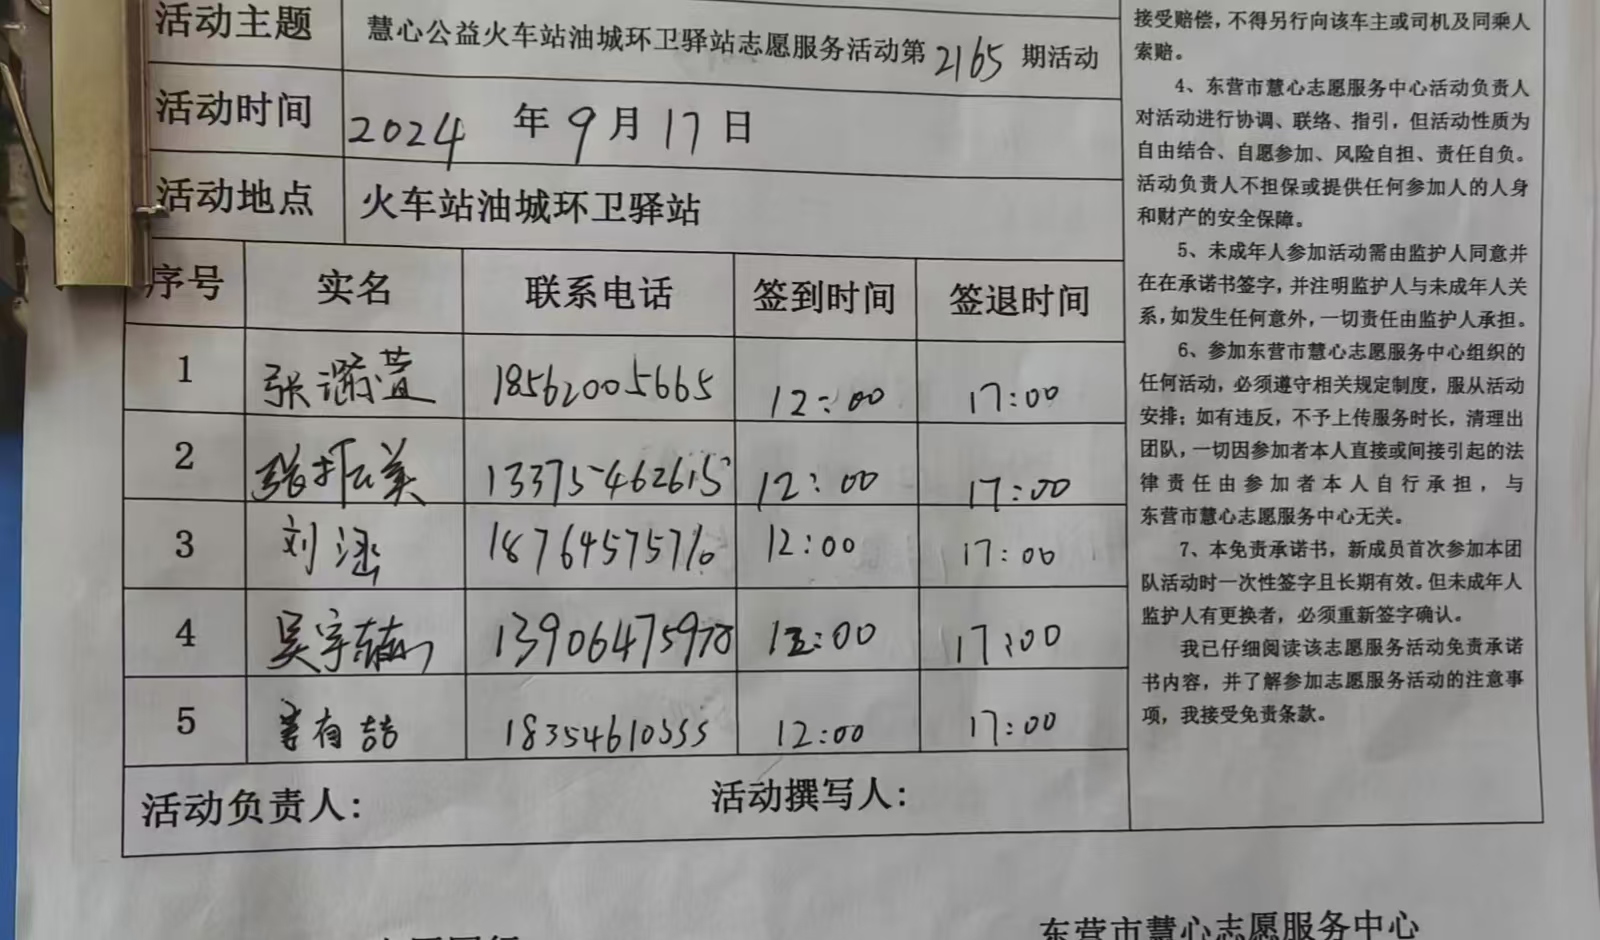 活动主题 慧心公益火车站油城环卫驿站志愿服务活动第2165期活动
活动时间 2024 年 9 月 17 日
活动地点 火车站油城环卫驿站
序号 实名 联系电话 签到时间 签退时间
1 张 18562005665 12:00 17:00
2 张振美 13375462615 12:00 17:00
3 刘涵 18764575716 12:00 17:00
4 吴宇 139064759 12:00 17:00
5 有喆 18354610555 12:00 17:00
活动负责人: 活动撰写人:
接受赔偿,不得另行向该车主或司机及同乘人
索赔。
4、东营市慧心志愿服务中心活动负责人
对活动进行协调、联络、指引,但活动性质为
自由结合、自愿参加、风险自担、责任自负。
活动负责人不担保或提供任何参加人的人身
和财产的安全保障。
5、未成年人参加活动需由监护人同意并
在在承诺书签字,并注明监护人与未成年人关
系,如发生任何意外,一切责任由监护人承担。
6、参加东营市慧心志愿服务中心组织的
任何活动,必须遵守相关规定制度,服从活动
安排;如有违反,不予上传服务时长,清理出
团队,一切因参加者本人直接或间接引起的法
律责任由参加者本人自行承担,与
东营市慧心志愿服务中心无关。
7、本免责承诺书,新成员首次参加本团
队活动时一次性签字且长期有效。但未成年人
监护人有更换者,必须重新签字确认。
我已仔细阅读该志愿服务活动免责承诺
书内容,并了解参加志愿服务活动的注意事
项,我接受免责条款。
东营市慧心志愿服务中心